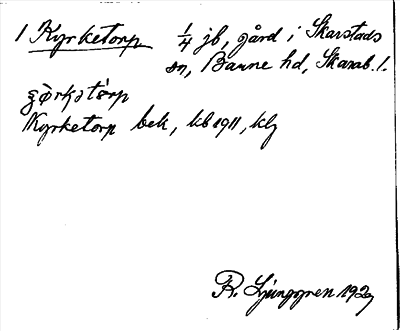 1 Kyrketorp 1/4 jb, gård i Skarstads
sn, Barne hd, Skarab. l.
Kyrketorp bek, kb 1911, klg
R. Ljunggren 1929